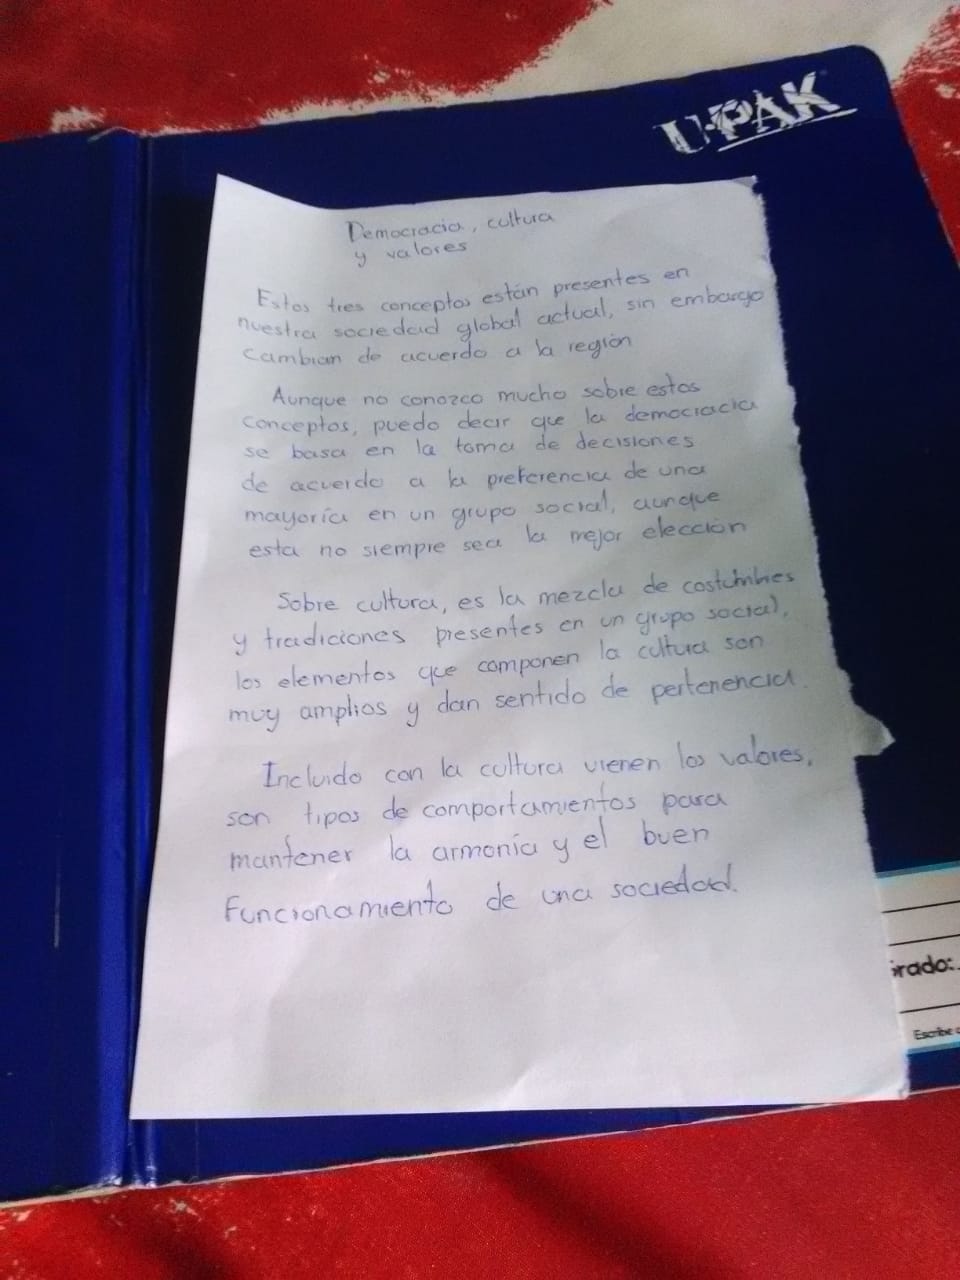 U·PAK
Democracia, cultura
y valores
Estos tres conceptos están presentes en
nuestra sociedad global actual, sin embargo
cambian de acuerdo a la región
Aunque no conozco mucho sobre estos
conceptos, puedo decir que la democracia
se basa en la toma de decisiones
de acuerdo a la preferencia de una
mayoría en un grupo social, aunque
esta no siempre sea la mejor elección
Sobre cultura, es la mezcla de costumbres
y tradiciones presentes en un grupo social,
los elementos que componen la cultura son
muy amplios y dan sentido de pertenencia.
Incluido con la cultura vienen los valores,
son tipos de comportamientos para
mantener la armonía y el buen
funcionamiento de una sociedad.
Grado:
Escribe